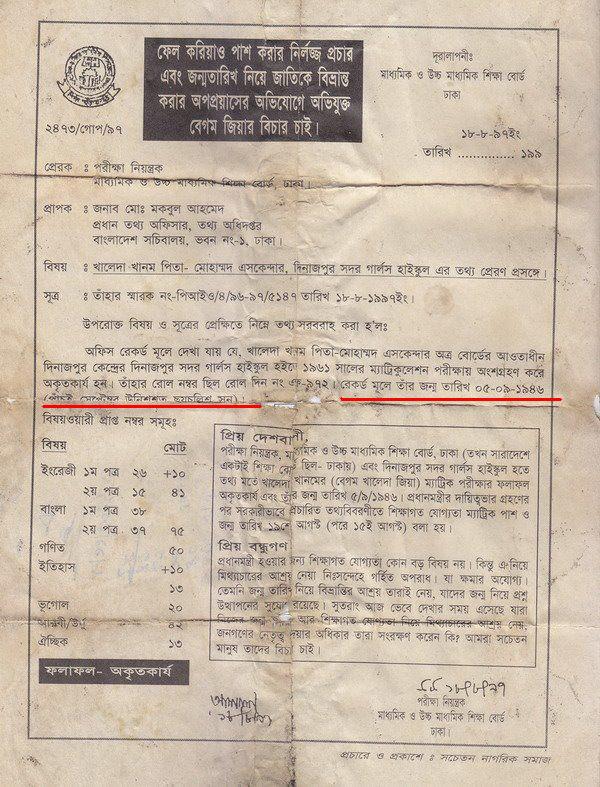 ফেল করিয়াও পাশ করার নির্লজ্জ প্রচার
এবং জন্মতারিখ নিয়ে জাতিকে বিভ্রান্ত
করার অপপ্রয়াসের অভিযোগে অভিযুক্ত
বেগম জিয়ার বিচার চাই।
দূরালাপনীঃ
মাধ্যমিক ও উচ্চ মাধ্যমিক শিক্ষা বোর্ড
ঢাকা
২৪৭৩/গোপ/৯৭
১৮-৮-৯৭ইং
তারিখ .............. ১৯৯
প্রেরক ঃ পরীক্ষা নিয়ন্ত্রক
মাধ্যমিক ও উচ্চ মাধ্যমিক শিক্ষা বোর্ড, ঢাকা।
প্রাপক ঃ জনাব মোঃ মকবুল আহমেদ
প্রধান তথ্য অফিসার, তথ্য অধিদপ্তর
বাংলাদেশ সচিবালয়, ভবন নং-১, ঢাকা।
বিষয় ঃ খালেদা খানম পিতা- মোহাম্মদ এসকেন্দার, দিনাজপুর সদর গার্লস হাইস্কুল এর তথ্য প্রেরণ প্রসঙ্গে।
সূত্র ঃ তাঁহার স্মারক নং-পিআইও/৪/৯৬-৯৭/৫১৪৭ তারিখ ১৮-৮-১৯৯৭ইং।
উপরোক্ত বিষয় ও সূত্রের প্রেক্ষিতে নিম্নে তথ্য সরবরাহ করা হ'লঃ
অফিস রেকর্ড মূলে দেখা যায় যে, খালেদা খানম পিতা-মোহাম্মদ এসকেন্দার অত্র বোর্ডের আওতাধীন
দিনাজপুর কেন্দ্রের দিনাজপুর সদর গার্লস হাইস্কুল হইতে ১৯৬১ সালের ম্যাট্রিকুলেশন পরীক্ষায় অংশগ্রহণ করে
অকৃতকার্য হন। তাঁহার রোল নম্বর ছিল রোল দিন নং এফ-৯৭২। রেকর্ড মূলে তাঁর জন্ম তারিখ ০৫-০৯-১৯৪৬
(পাঁচই সেপ্টেম্বর উনিশশত ছয়চল্লিশ সন)।
বিষয়ওয়ারী প্রাপ্ত নম্বর সমূহঃ
বিষয় মোট
ইংরেজী ১ম পত্র ২৬ +১০
২য় পত্র ১৫ ৪১
বাংলা ১ম পত্র ৩৮
২য় পত্র ৩৭ ৭৫
গণিত ৫০
ইতিহাস +১০
১৩
ভূগোল ২০
৪২
ঐচ্ছিক ১৩
ফলাফল- অকৃতকার্য
প্রিয় দেশবাসী,
পরীক্ষা নিয়ন্ত্রক, মাধ্যমিক ও উচ্চ মাধ্যমিক শিক্ষা বোর্ড, ঢাকা (তখন সারাদেশে
একটাই শিক্ষা বোর্ড ছিল- ঢাকায়) এবং দিনাজপুর সদর গার্লস হাইস্কুল হতে
তথ্য মতে খালেদা খানমের (বেগম খালেদা জিয়া) ম্যাট্রিক পরীক্ষার ফলাফল
অকৃতকার্য এবং তাঁর জন্ম তারিখ ৫/৯/১৯৪৬। প্রধানমন্ত্রীর দায়িত্বভার গ্রহণের
পর সরকারীভাবে প্রচারিত তথ্যবিবরণীতে শিক্ষাগত যোগ্যতা ম্যাট্রিক পাশ ও
জন্ম তারিখ ১৯শে আগস্ট (পরে ১৫ই আগস্ট) বলা হয়।
প্রিয় বন্ধুগণ
প্রধানমন্ত্রী হওয়ার জন্য শিক্ষাগত যোগ্যতা কোন বড় বিষয় নয়। কিন্তু এ নিয়ে
মিথ্যাচারের আশ্রয় নেয়া নিঃসন্দেহে গর্হিত অপরাধ। যা ক্ষমার অযোগ্য।
তেমনি জন্ম তারিখ নিয়ে বিভ্রান্তির আশ্রয় তারাই নেয়, যাদের জন্ম নিয়ে প্রশ্ন
উত্থাপনের সুযোগ রয়েছে। সুতরাং আজ ভেবে দেখার সময় এসেছে যারা
নিজের জন্ম আর শিক্ষাগত যোগ্যতা নিয়ে মিথ্যাচারের আশ্রয় নেয়,
জনগণের নেতৃত্ব দেয়ার অধিকার তারা সংরক্ষণ করেন কি? আমরা সচেতন
মানুষ তাদের বিচার চাই।
১৮/৮/৯৭
পরীক্ষা নিয়ন্ত্রক
মাধ্যমিক ও উচ্চ মাধ্যমিক শিক্ষা বোর্ড
ঢাকা।
প্রচারে ও প্রকাশে ঃ সচেতন নাগরিক সমাজ